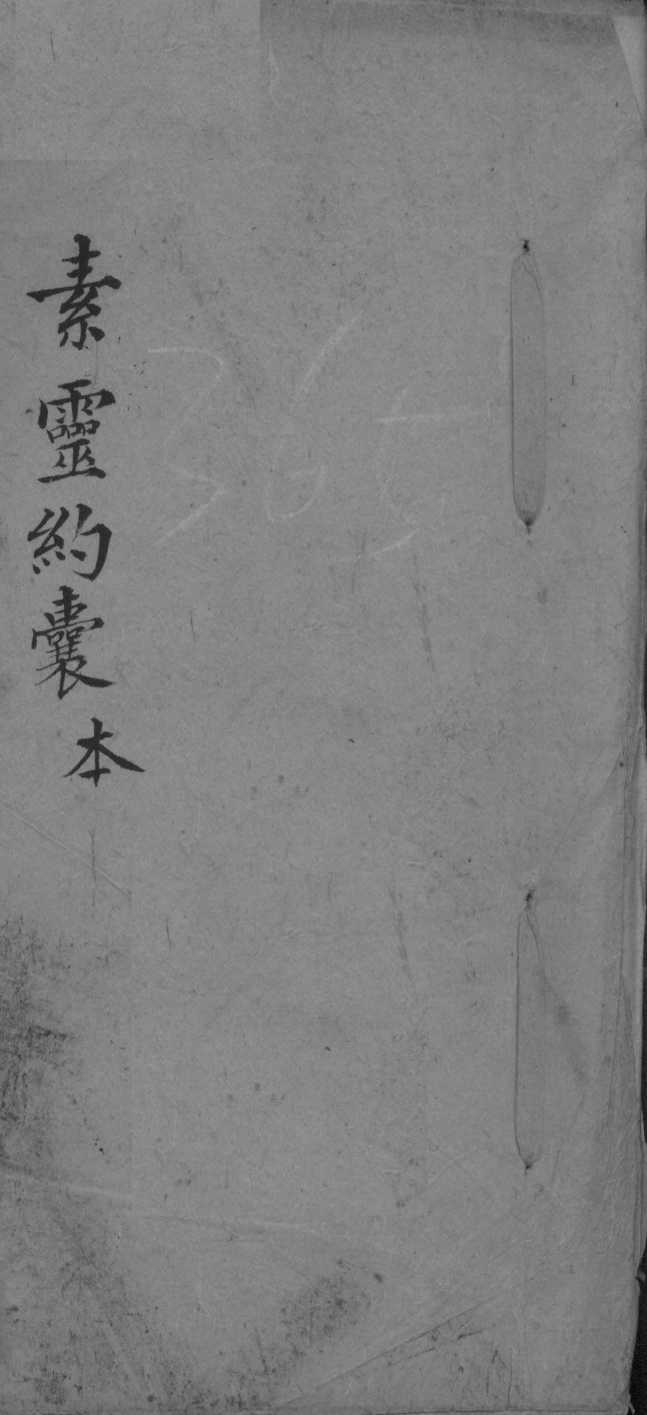 素靈約囊本
365